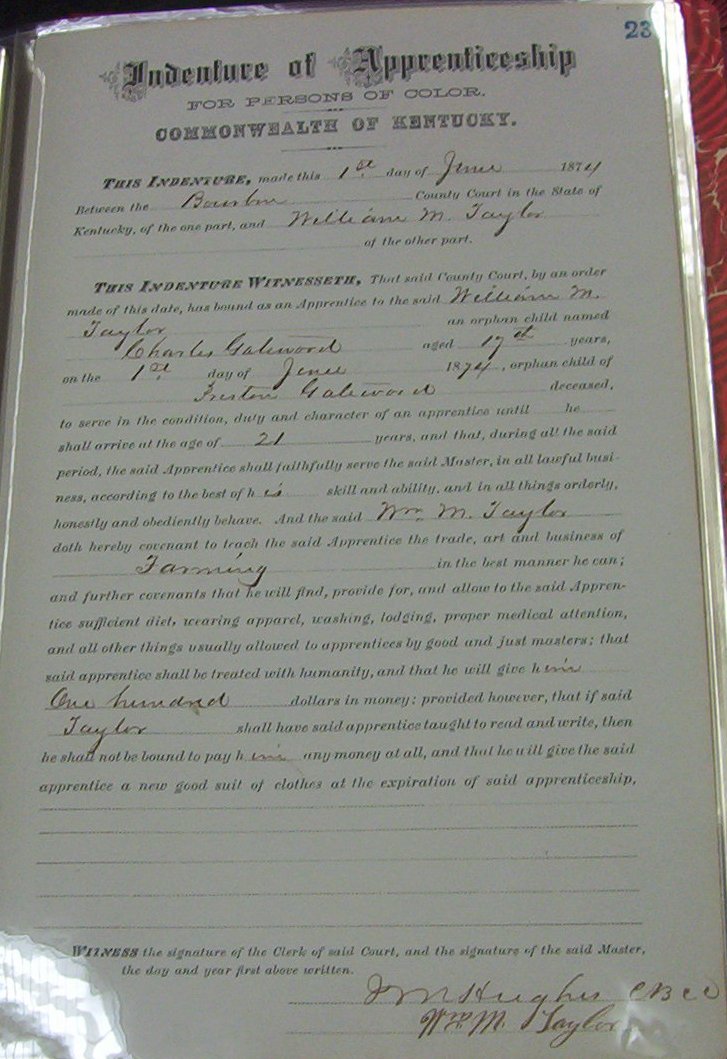 23
Indenture of Apprenticeship
FOR PERSONS OF COLOR.
COMMONWEALTH OF KENTUCKY.
THIS INDENTURE, made this 1st day of June 1874
Between the Bourbon County Court in the State of
Kentucky, of the one part, and William M. Taylor
of the other part.
THIS INDENTURE WITNESSETH, That said County Court, by an order
made of this date, has bound as an Apprentice to the said William M.
Taylor an orphan child named
Charles Gatewood aged 17 years,
on the 1st day of June 1874, orphan child of
Preston Gatewood deceased,
to serve in the condition, duty and character of an apprentice until he
shall arrive at the age of 21 years, and that, during all the said
period, the said Apprentice shall faithfully serve the said Master, in all lawful busi-
ness, according to the best of his skill and ability, and in all things orderly,
honestly and obediently behave. And the said Wm. M. Taylor
doth hereby covenant to teach the said Apprentice the trade, art and business of
Farming in the best manner he can;
and further covenants that he will find, provide for, and allow to the said Appren-
tice sufficient diet, wearing apparel, washing, lodging, proper medical attention,
and all other things usually allowed to apprentices by good and just masters; that
said apprentice shall be treated with humanity, and that he will give him
One hundred dollars in money: provided however, that if said
Taylor shall have said apprentice taught to read and write, then
he shall not be bound to pay him any money at all, and that he will give the said
apprentice a new good suit of clothes at the expiration of said apprenticeship,
WITNESS the signature of the Clerk of said Court, and the signature of the said Master,
the day and year first above written.
Hughes CBCC
Wm. M. Taylor